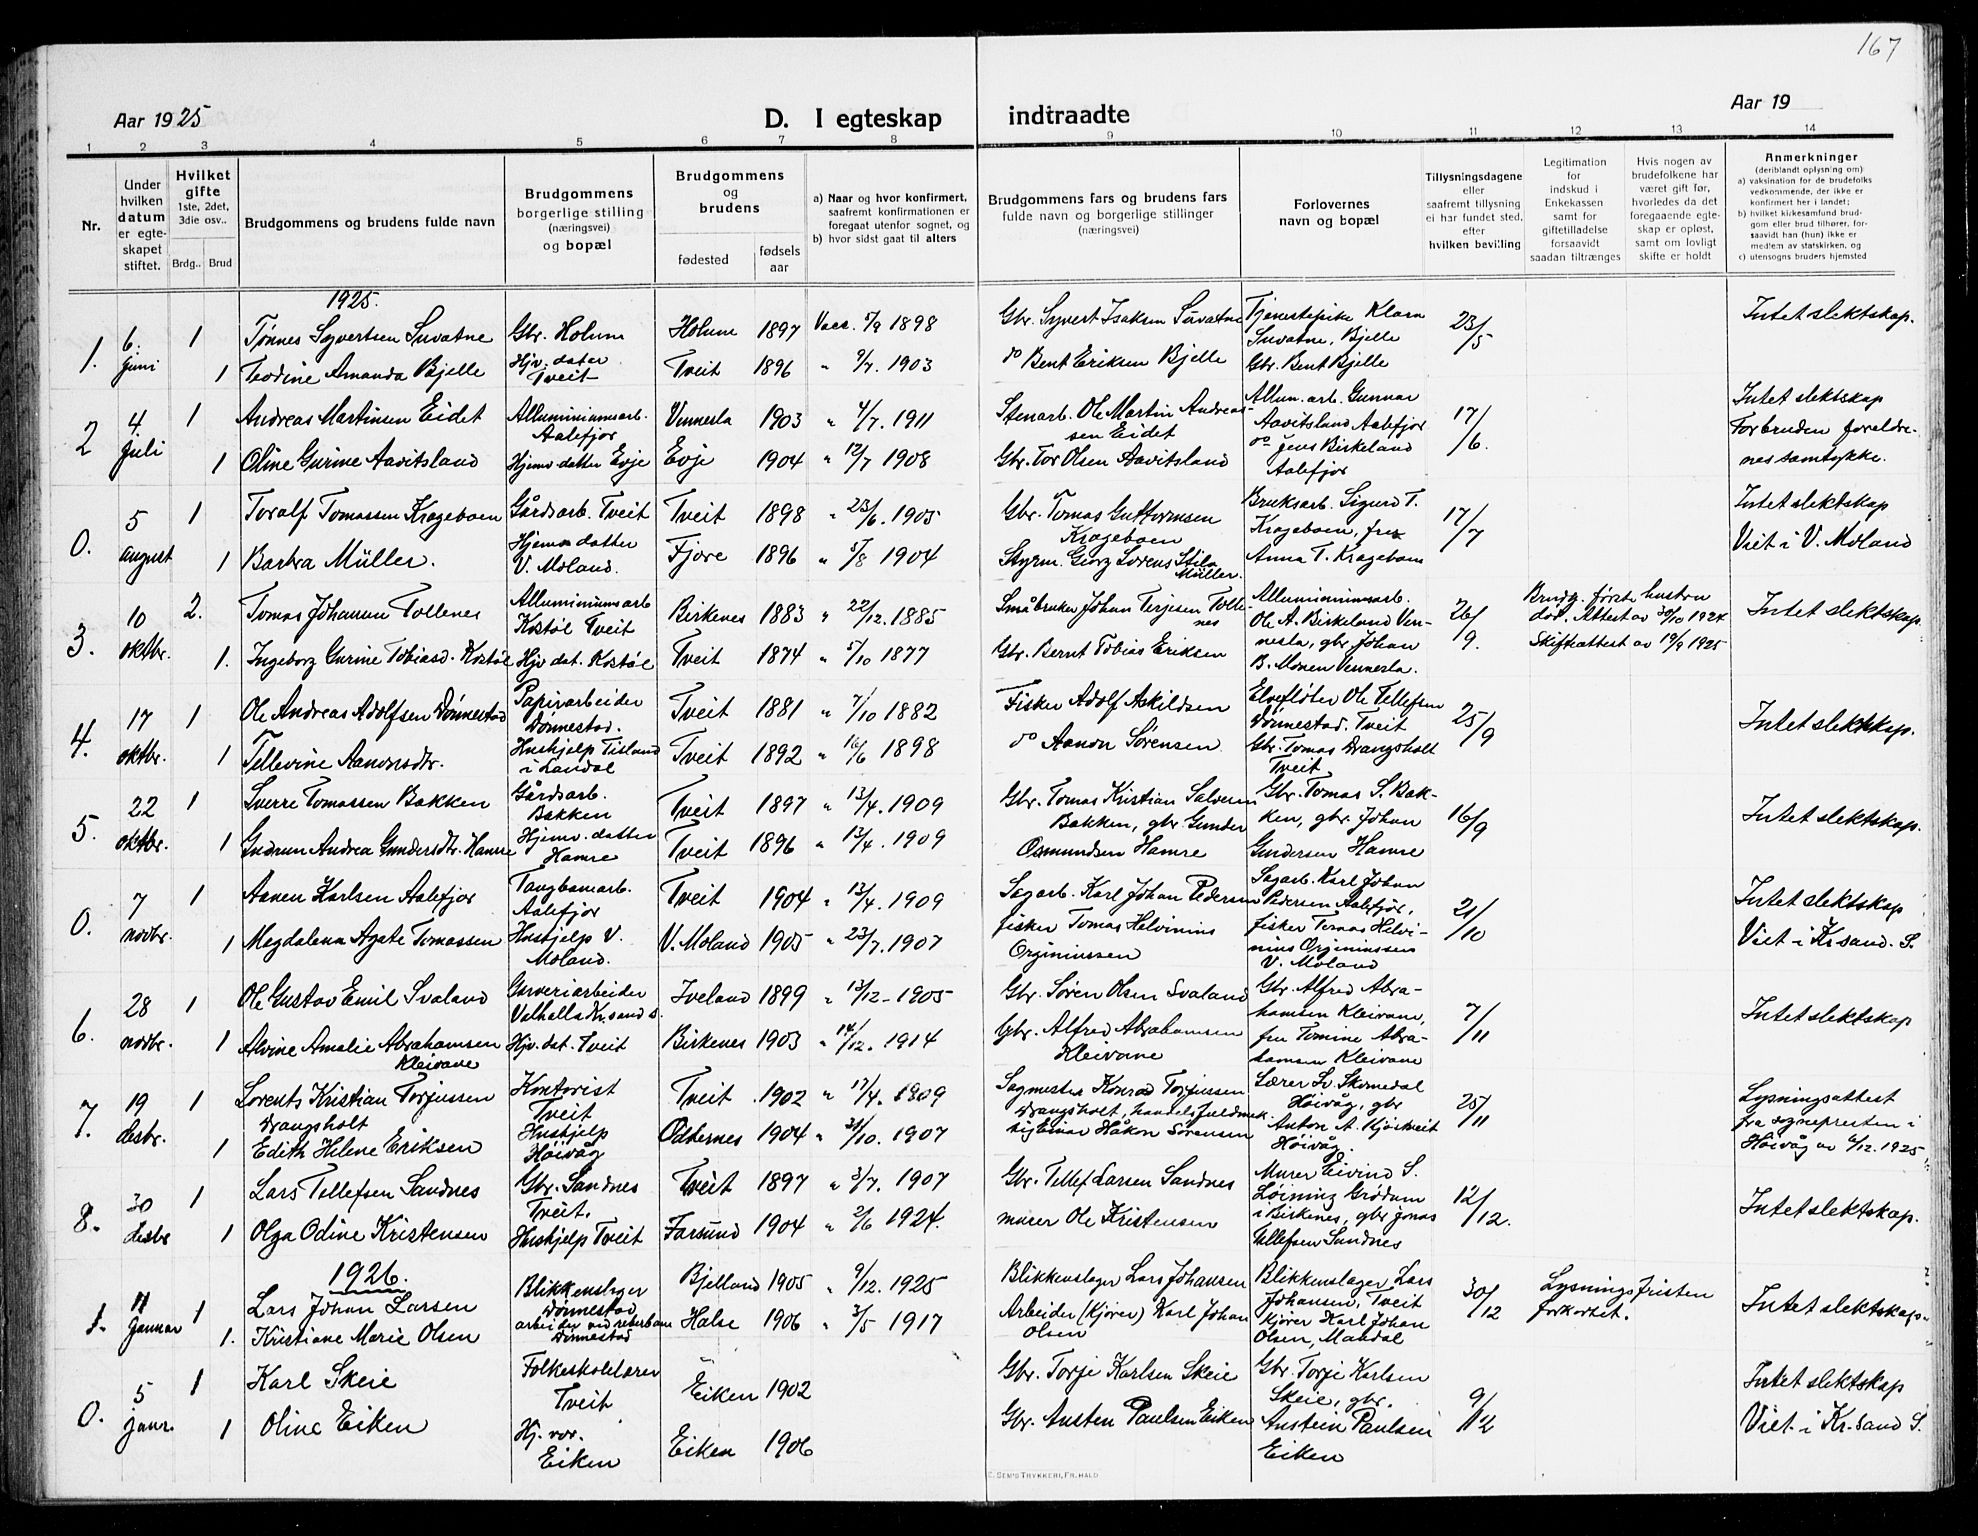 167
Aar 1925
D. I egteskap indtraadte
Aar 19
1 2 3 4 5 6 7 8 9 10 11 12 13 14
Nr.
Under hvilken datum er egteskapet stiftet.
Hvilket gifte 1ste, 2det, 3die osv..
Brdg.. Brud
Brudgommens og brudens fulde navn
Brudgommens borgerlige stilling (næringsvei) og bopæl
Brudgommens og brudens
fødested
fødsels aar
a) Naar og hvor konfirmert, saafremt konfirmationen er foregaat utenfor sognet, og
b) hvor sidst gaat til alters
Brudgommens fars og brudens fars fulde navn og borgerlige stillinger (næringsvei)
Forlovernes navn og bopæl
Tillysningsdagene eller saafremt tillysning ei har fundet sted, efter hvilken bevilling
Legitimation for indskud i Enkekassen samt for giftetilladelse forsaavidt saadan tiltrænges
Hvis nogen av brudefolkene har været gift før, hvorledes da det foregaaende egteskap er opløst, samt om lovligt skifte er holdt
Anmerkninger (deriblandt oplysning om) a) vaksination for de brudefolks vedkommende, der ikke er konfirmert her i landet; b) hvilket kirkesamfund brudgom eller brud tilhører, forsaavidt han (hun) ikke er medlem av statskirken, og c) utensogns bruders hjemsted
1925.
1. 6. juni 1 Tønnes Syvertsen Suvatne Gbr. Holum Holum 1897 Vacc. 5/9 1898 Gbr. Syvert Isaksen Suvatne Tjenestepike Klara Suvatne, Bjelle 23/5 Intet slektskap.
1 Teodine Amanda Bjelle Hjv. datter Tveit Tveit 1896 " 9/7. 1903 do Bent Eriksen Bjelle Gbr. Bent Bjelle
2 4 juli 1 Andreas Martinsen Eidet Alluminiumsarb. Aalefjør Vennesla 1903 " 4/7. 1911 Stenarb. Ole Martin Andreassen Eidet Allum. arb. Gunnar Aavitsland Aalefjor 17/6. Intet slektskap
1 Oline Gurine Aavitsland Hjemv. datter Evje Evje 1904 " 12/7 1908 Gbr. Tor Olsen Aavitsland do Jens Birkeland Aalefjor For bruden foreldrenes samtykke.
0. 5 august 1 Toralf Tomassen Krageboen Gårdsarb. Tveit Tveit 1898 " 23/6. 1905 Gbr. Tomas Guttormsen Krageboen Bruksarb. Sigurd T. Krageboen, 17/7 Intet slektskap
1 Barbra Müller. Hjemv. datter V. Moland. Fjære 1896 " 5/8 1904 Styrm. Georg Lorens Müller. Anna T. Krageboen Viet i V. Moland
3. 10 oktbr. 2. Tomas Johansen Tollenes Alluminiumsarb Kostøl Tveit Birkenes 1883 " 22/12. 1885 Småbruker Johan Terjesen Tollenes Alluminiumsarb. Ole A. Birkeland Vennesla, gbr Johan B. Monen Vennesla. 26/9. Brudg. første hustru død. Attest av 30/10 1924. Skifteattest av 19/9 1925 Intet slektskap.
1. Ingeborg Gurine Tobiasd. Kostøl Hjv. dat. Kostøl Tveit 1874 " 5/10 1877 Gbr. Bernt Tobias Eriksen
4. 17 oktbr. 1 Ole Andreas Adolfsen Dønnestad Papirarbeider Dønnestad. Tveit 1881 " 7/10 1882 Fisker Adolf Askildsen Elvefløter Ole Tellefsen Dønnestad. Tveit 25/9 Intet slektskap.
1 Tellevine Aanonsdtr. Hushjelp Tisland i Landal Tveit 1892 " 16/6 1898 do Aanon Sørensen Gbr. Tomas Drangsholt Tveit
5. 22 oktbr. 1 Sverre Tomassen Bakken Gårdsarb. Bakken Tveit 1897 " 13/4. 1909 Gbr. Tomas Kristian Salvesen Bakken, gbr. Gunder Gbr. Tomas S. Bakken, gbr. Johan 16/9 Intet slektskap.
1 Gudrun Andrea Gundersdtr. Hamre Hjemv. datter Hamre Tveit 1896 " 13/4. 1909 Osmundsen Hamre Gundersen Hamre
0. 7 novbr. 1 Aanen Karlsen Aalefjor Taugbanearb. Aalefjor Tveit 1904 " 13/4. 1909 Sagarb. Karl Johan Pedersen Sagarb. Karl Johan Pedersen Aalefjør, 21/10 Intet slektskap
1 Magdalena Agate Tomassen Hushjelp V. Moland. V. Moland 1905 " 23/7. 1907 fisker Tomas Helvinius Orginiussen fisker Tomas Helvinius Orginiussen V. Moland Viet i Kr.sand. S.
6. 28 novbr. 1 Ole Gustav Emil Svaland Garveriarbeider Valhalla Kr.sand S. Iveland 1899 " 13/12 - 1905 Gbr. Søren Olsen Svaland Gbr. Alfred Abrahamsen Kleivane, 7/11 Intet slektskap
1 Alvine Amalie Abrahamsen Kleivane Hjv. dat. Tveit Birkenes 1903 " 14/12. 1914 Gbr. Alfred Abrahamsen Kleivane fru Tomine Abrahamsen Kleivane
7. 19 desbr. 1 Lorents Kristian Torjussen Drangsholt Kontorist Tveit Tveit 1902 " 17/4. 1909 Sagmester Konrad Torjussen Drangsholt, Lærer Sv. Skomedal Høivåg, gbr 25/11 Lysningsattest fra sognepresten i Høivåg av 6/12. 1925
1 Edith Helene Eriksen Hushjelp Høivåg Oddernes 1904 " 31/10. 1907 Håkon Sørensen Anton A. Kjørkveit Høivåg.
8. 30 desbr 1 Lars Tellefsen Sandnes Gbr. Sandnes Tveit. Tveit 1897 " 3/7. 1907 Gbr. Tellef Larsen Sandnes Murer Eivind S. Løining Grødum i Birkenes, gbr Jonas Tellefsen Sandnes 12/12. Intet slektskap.
1 Olga Odine Kristensen Hushjelp Tveit Farsund 1904 " 2/6 1924. murer Ole Kristensen
1926.
1. 11 Januar 1 Lars Johan Larsen Blikkenslager Dønnestad Bjelland 1905 " 9/12. 1925 Blikkenslager Lars Johansen Blikkenslager Lars Johansen, Tveit 30/12 Lysningsfristen forkortet. Intet slektskap.
1. Kristiane Marie Olsen arbeider ved reberbane Dønnestad Halse 1906 " 3/5 1917 Arbeider (Kjører) Karl Johan Olsen Kjører Karl Johan Olsen, Mandal
0. 5 janr. 1 Karl Skeie Folkeskolelærer Tveit Eiken 1902 Gbr. Torje Karlsen Skeie Gbr. Torje Karlsen Skeie, gbr. 9/12 Intet slektskap
1 Oline Eiken Hj. vær. Eiken Eiken 1906 Gbr. Austen Paulsen Eiken Austein Paulsen Eiken Viet i Kr.sand S.
E. SEM'S TRYKKERI, FR. HALD